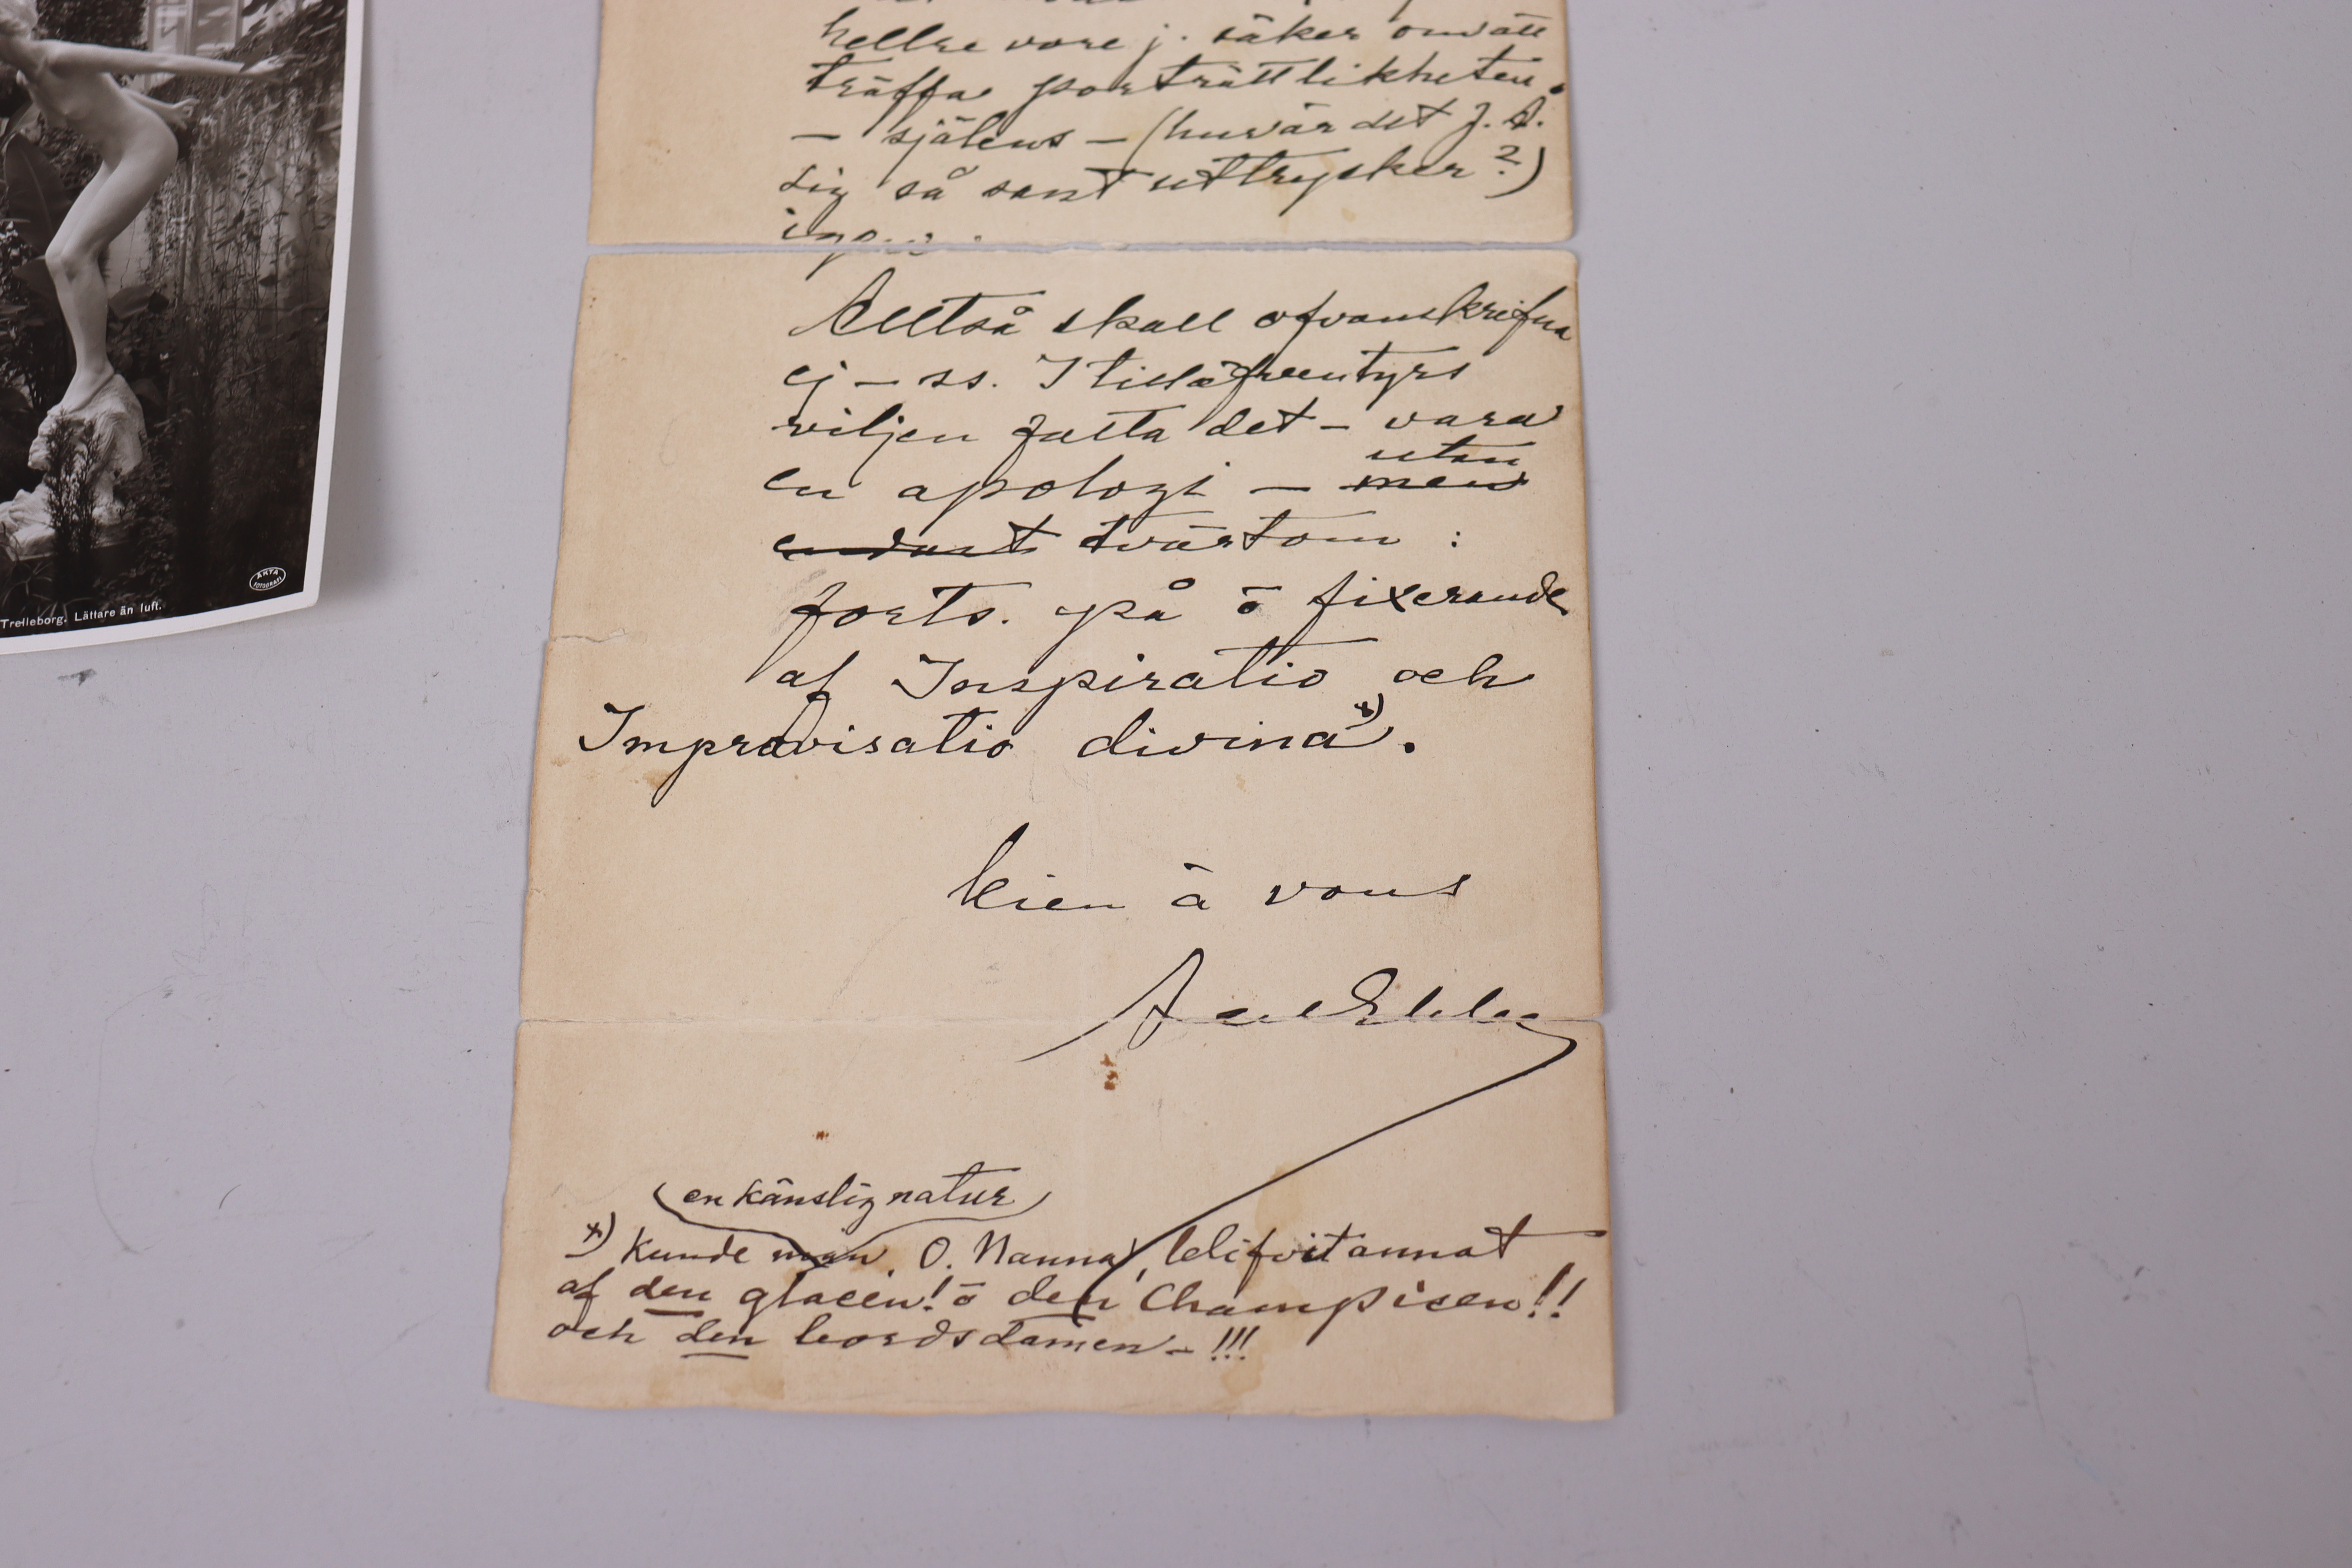 hellre vore j. säker om att
träffa porträttlikheten.
— själens — (hur är det J. A.
sig så sant uttrycker?)
Alltså skall ofvanskrifna
ej — ss. I till äfventyrs
viljen fatta det — vara
en apologi — utan men
endast tvärtom :
forts. på ō fixerande
af Inspiratio och
Improvisatio divina x).
bien à vous
Axel Ebbe
en känslig natur
x) Kunde man, O. Nanna, blifvit annat
af den glacen! ō den Champisen!!
och den bordsdamen — !!!
Trelleborg. Lättare än luft.
ÄKTA
FOTOGRAFI